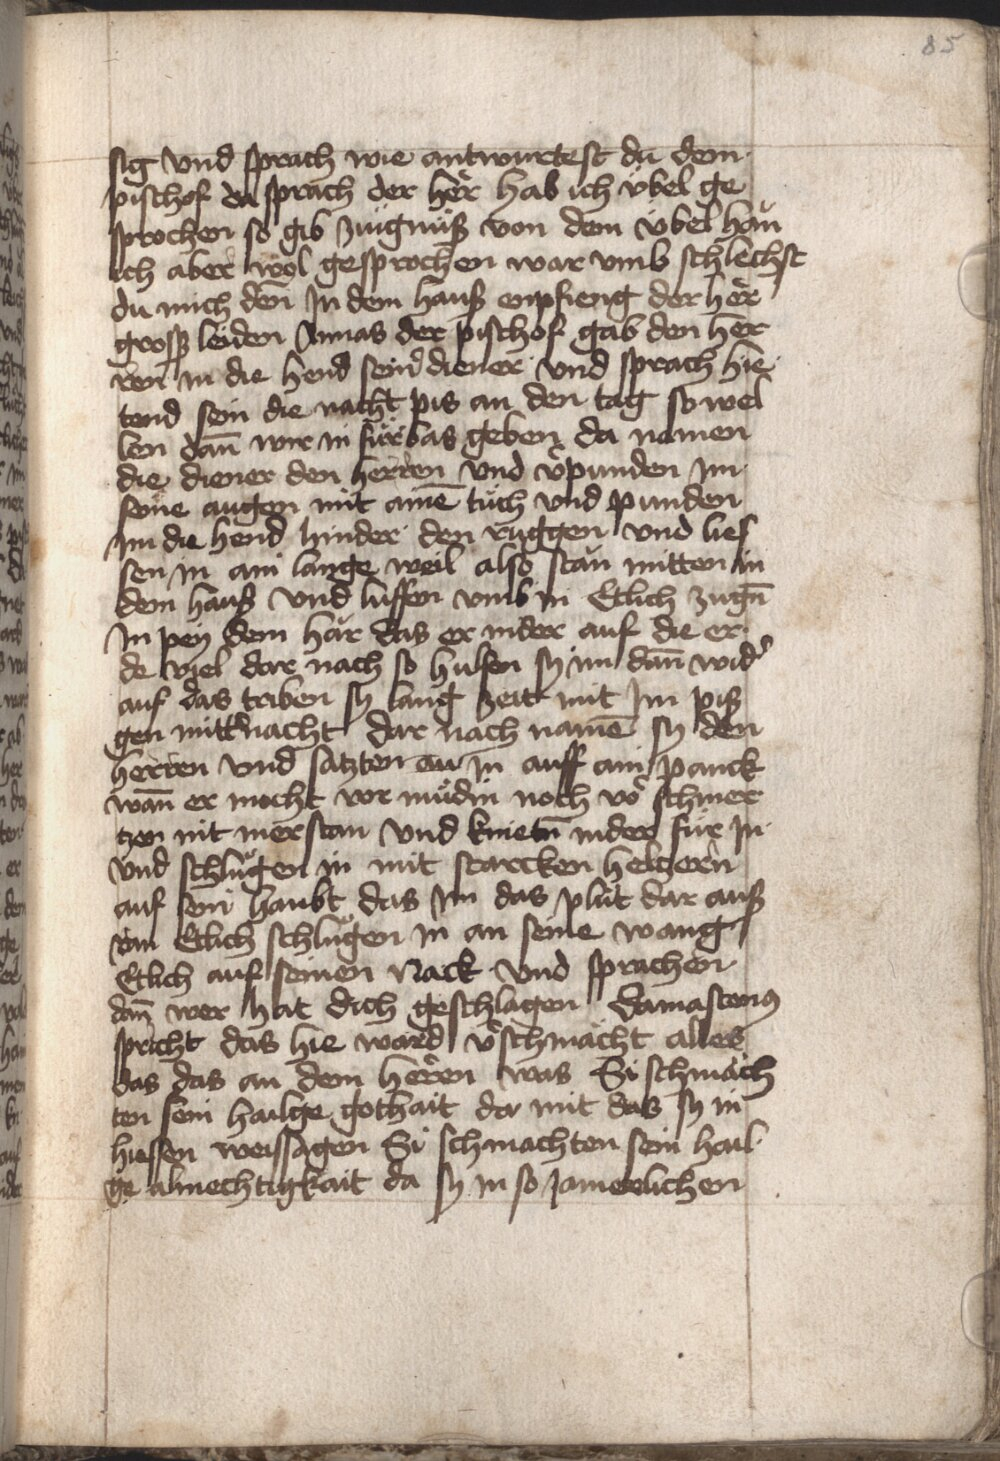 85
sig vnd sprach wie antwurtest du dem
pischof da sprach der her hab ich übel ge
sprochen so gib zugnuß von dem übel han
ich aber wol gesprochen war vmb schlechst
du mich den In dem hauß enpfieng der her
gross leiden Annas der pischof gab den her
ren in die hend seinr diener vnd sprach hie
tend sein die nacht pis an den tag so wel
len dan̄ wir in für bas geben da namen
die diener den herren vnd v̾punden im
seine augen mit aine͞ tuch vnd punden
im die hend hinder den ruggen vnd lies
sen in ain lange weil also stan mitten in
dem hauß vnd luffen vmb in Etlich zugn̄
In pey dem har das er nider auf die er
de viel dar nach so hulfen sy im dan̄ wid̾
auf das triben sy lang zeit mit Im piß
gen mitnacht dar nach name͞ sy den
herren vnd satzten in auff ain panck
wan̄ er mocht vor müdin noch vo̾ schmer
tzen nit mer stan vnd knietn̄ nider für In
vnd schlůgen in mit starcken heltzern
auf sein haubt das Im das plut dar auß
ran Etlich schlůgen in an seine wang
Etlich auf seinen Nack vnd sprachen
dan̄ wer hat dich geschlagen Damascenꝰ
spricht das hie ward v̾schmächt alles
das das an dem heren was Si schmäch
ten sein hailge gothait dar mit das sy in
hiessen weissagen Si schmachten sein hail
ge almechtigkait da sy in so Jamerlichen